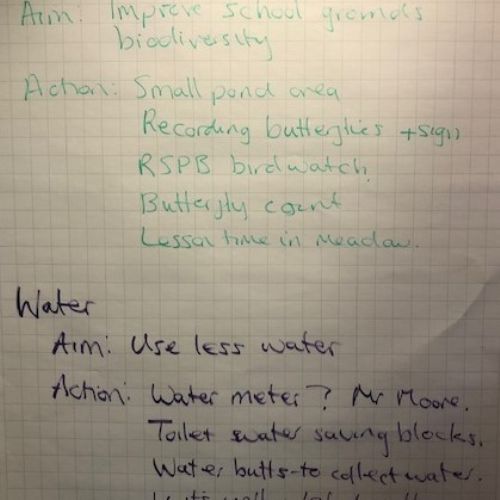 Aim: Improve school grounds
biodiversity
Action: Small pond area
Recording butterflies + sign
RSPB birdwatch
Butterfly count
Lesson time in meadow.
Water
Aim: Use less water
Action: Water meter? Mr Moore.
Toilet water saving blocks.
Water butts-to collect water.